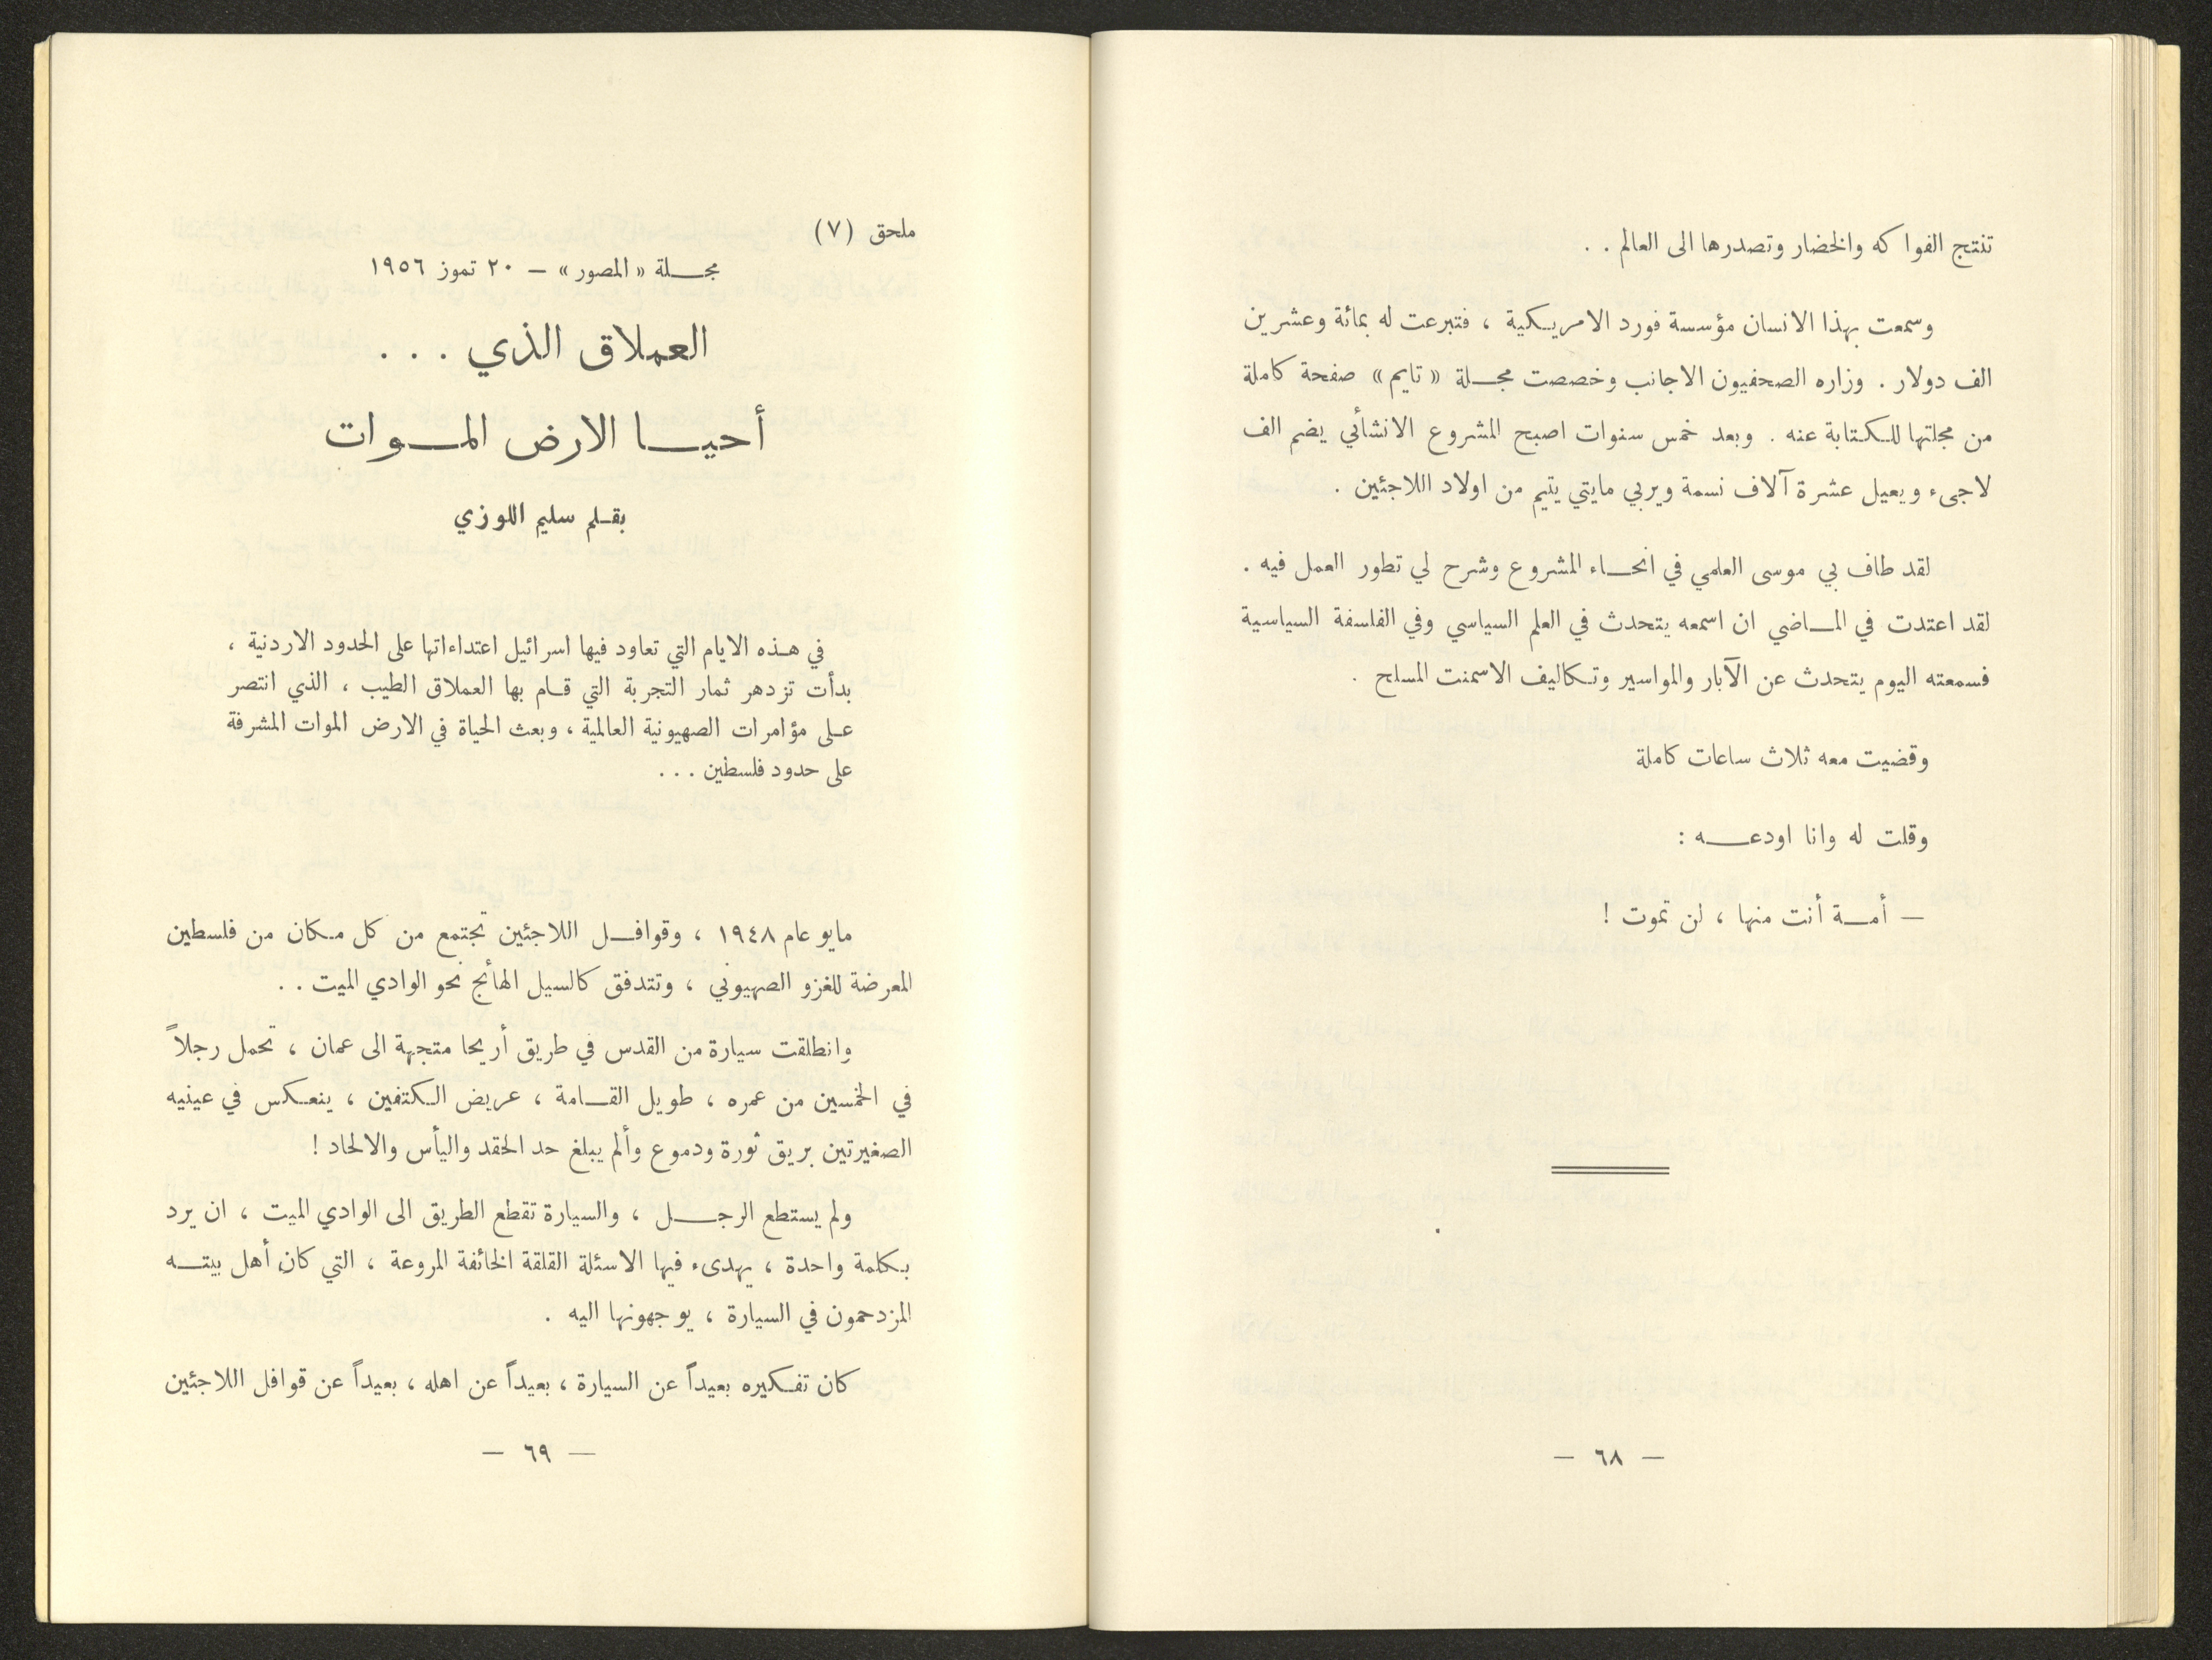 تنتج الفواكه والخضار وتصدرها الى العالم . .
وسمعت بهذا الانسان مؤسسة فورد الامريكية ، فتبرعت له بمائة وعشرين
الف دولار . وزاره الصحفيون الاجانب وخصصت مجلة « تايم » صفحة كاملة
من مجلتها للكتابة عنه . وبعد خمس سنوات اصبح المشروع الانشائي يضم الف
لاجىء ويعيل عشرة آلاف نسمة ويربي مايتي يتيم من اولاد اللاجئين .
لقد طاف بي موسى العلمي في انحاء المشروع وشرح لي تطور العمل فيه .
لقد اعتدت في الماضي ان اسمعه يتحدث في العلم السياسي وفي الفلسفة السياسية
فسمعته اليوم يتحدث عن الآبار والمواسير وتكاليف الاسمنت المسلح .
وقضيت معه ثلاث ساعات كاملة
وقلت له وانا اودعه :
— أمة أنت منها ، لن تموت !
— ٦٨ —
ملحق (٧)
مجلة « المصور » — ٢٠ تموز ١٩٥٦
العملاق الذي . . .
أحيا الارض الموات
بقلم سليم اللوزي
في هذه الايام التي تعاود فيها اسرائيل اعتداءاتها على الحدود الاردنية ،
بدأت تزدهر ثمار التجربة التي قام بها العملاق الطيب ، الذي انتصر
على مؤامرات الصهيونية العالمية ، وبعث الحياة في الارض الموات المشرفة
على حدود فلسطين . . .
مايو عام ١٩٤٨ ، وقوافل اللاجئين تجتمع من كل مكان من فلسطين
المعرضة للغزو الصهيوني ، وتتدفق كالسيل الهائج نحو الوادي الميت . .
وانطلقت سيارة من القدس في طريق أريحا متجهة الى عمان ، تحمل رجلاً
في الخمسين من عمره ، طويل القامة ، عريض الكتفين ، ينعكس في عينيه
الصغيرتين بريق ثورة ودموع وألم يبلغ حد الحقد واليأس والالحاد !
ولم يستطع الرجل ، والسيارة تقطع الطريق الى الوادي الميت ، ان يرد
بكلمة واحدة ، يهدىء فيها الاسئلة القلقة الخائفة المروعة ، التي كان أهل بيته
المزدحمون في السيارة ، يوجهونها اليه .
كان تفكيره بعيداً عن السيارة ، بعيداً عن اهله ، بعيداً عن قوافل اللاجئين
— ٦٩ —